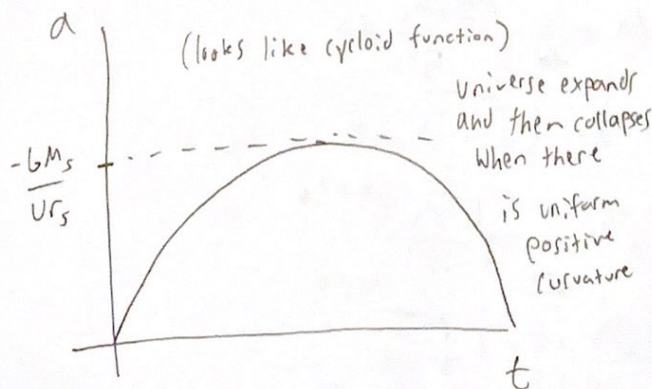 a
(looks like cycloid function)
universe expands
and then collapses
when there
is uniform
positive
curvature
-GMs
Urs
t